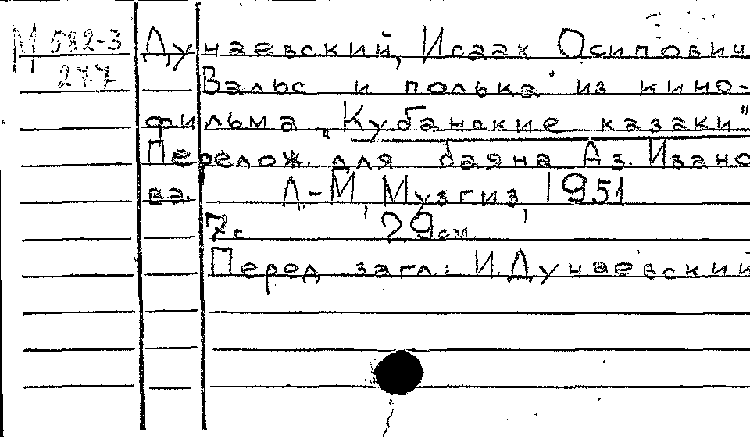 М 582-3
277
Дунаевский, Исаак Осипович
Вальс и полька из кино-
фильма „Кубанские казаки"
Перелож. для баяна Аз. Ивано
ва Л-М, Музгиз, 1951
7с. 29см
Перед загл.: И. Дунаевский